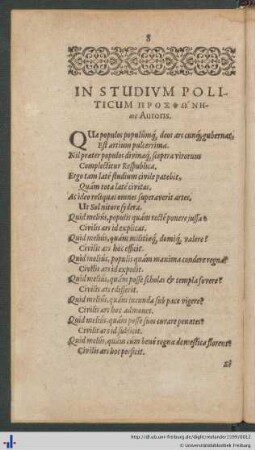 8
IN STUDIVM POLI-
TICUM ΠΡΟΣΦΩΝΗ-
Autoris.
QVæ populos populisq́, deos ars cunq́, gubernat,
Est artium pulcerrima.
Nil præter populos divinaq́, sceptra virorum
Complectitur Respublica.
Ergo tam latè studium civile patebit,
Quàm tota latè civitas.
Ac ideo reliquas omnes superaverit artes,
Ut Sol nitore sydera.
Quid melius, populis quàm rectè ponere jussa?
Civilis ars id explicat.
Quid melius, quàm militiæq́, domiq́, valere?
Civilis ars hoc efficit.
Quid melius, populis quàm maxima condere regna?
Civilis ars id expedit.
Quid melius, quàm posse scholas & templa fovere?
Civilis ars id
Quid melius, quàm jucunda sub pace vigere?
Civilis ars hoc admonet.
Quid melius, quàm posse suos curare penates?
Civilis ars id subjicit.
Quid melius, quàm cum benè regna domestica florent?
Civilis ars hoc perficit.
http://dl.ub.uni-freiburg.de/diglit/
© Universitätsbibliothek Freiburg